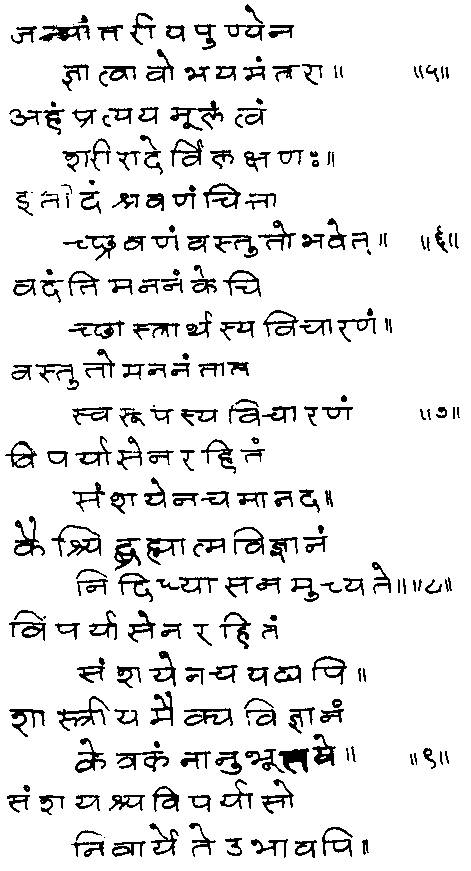 जन्मांतरीयपुण्येन
ज्ञात्वावोभयमंतरा॥ ॥५॥
अहं प्रत्ययमूलं त्वं
शरीरादेर्विलक्षणः॥
इतीदं श्रवणं चित्ता
च्छ्रवणं वस्तुतो भवेत्॥ ॥६॥
वदंति मननं केचि
च्छास्त्रार्थस्य विचारणं॥
वस्तुतो मननं तात
स्वरूपस्य विचारणं ॥७॥
विपर्यासेन रहितं
संशयेन च मानद॥
कैश्चिद्ब्रह्मात्मविज्ञानं
निदिध्यासनमुच्यते॥॥८॥
विपर्यासेन रहितं
संशयेन च यद्यपि॥
शास्त्रीयमैक्यविज्ञानं
केवलं नानुभूतये॥ ॥९॥
संशयश्चविपर्यासो
निवार्येते उभावपि॥